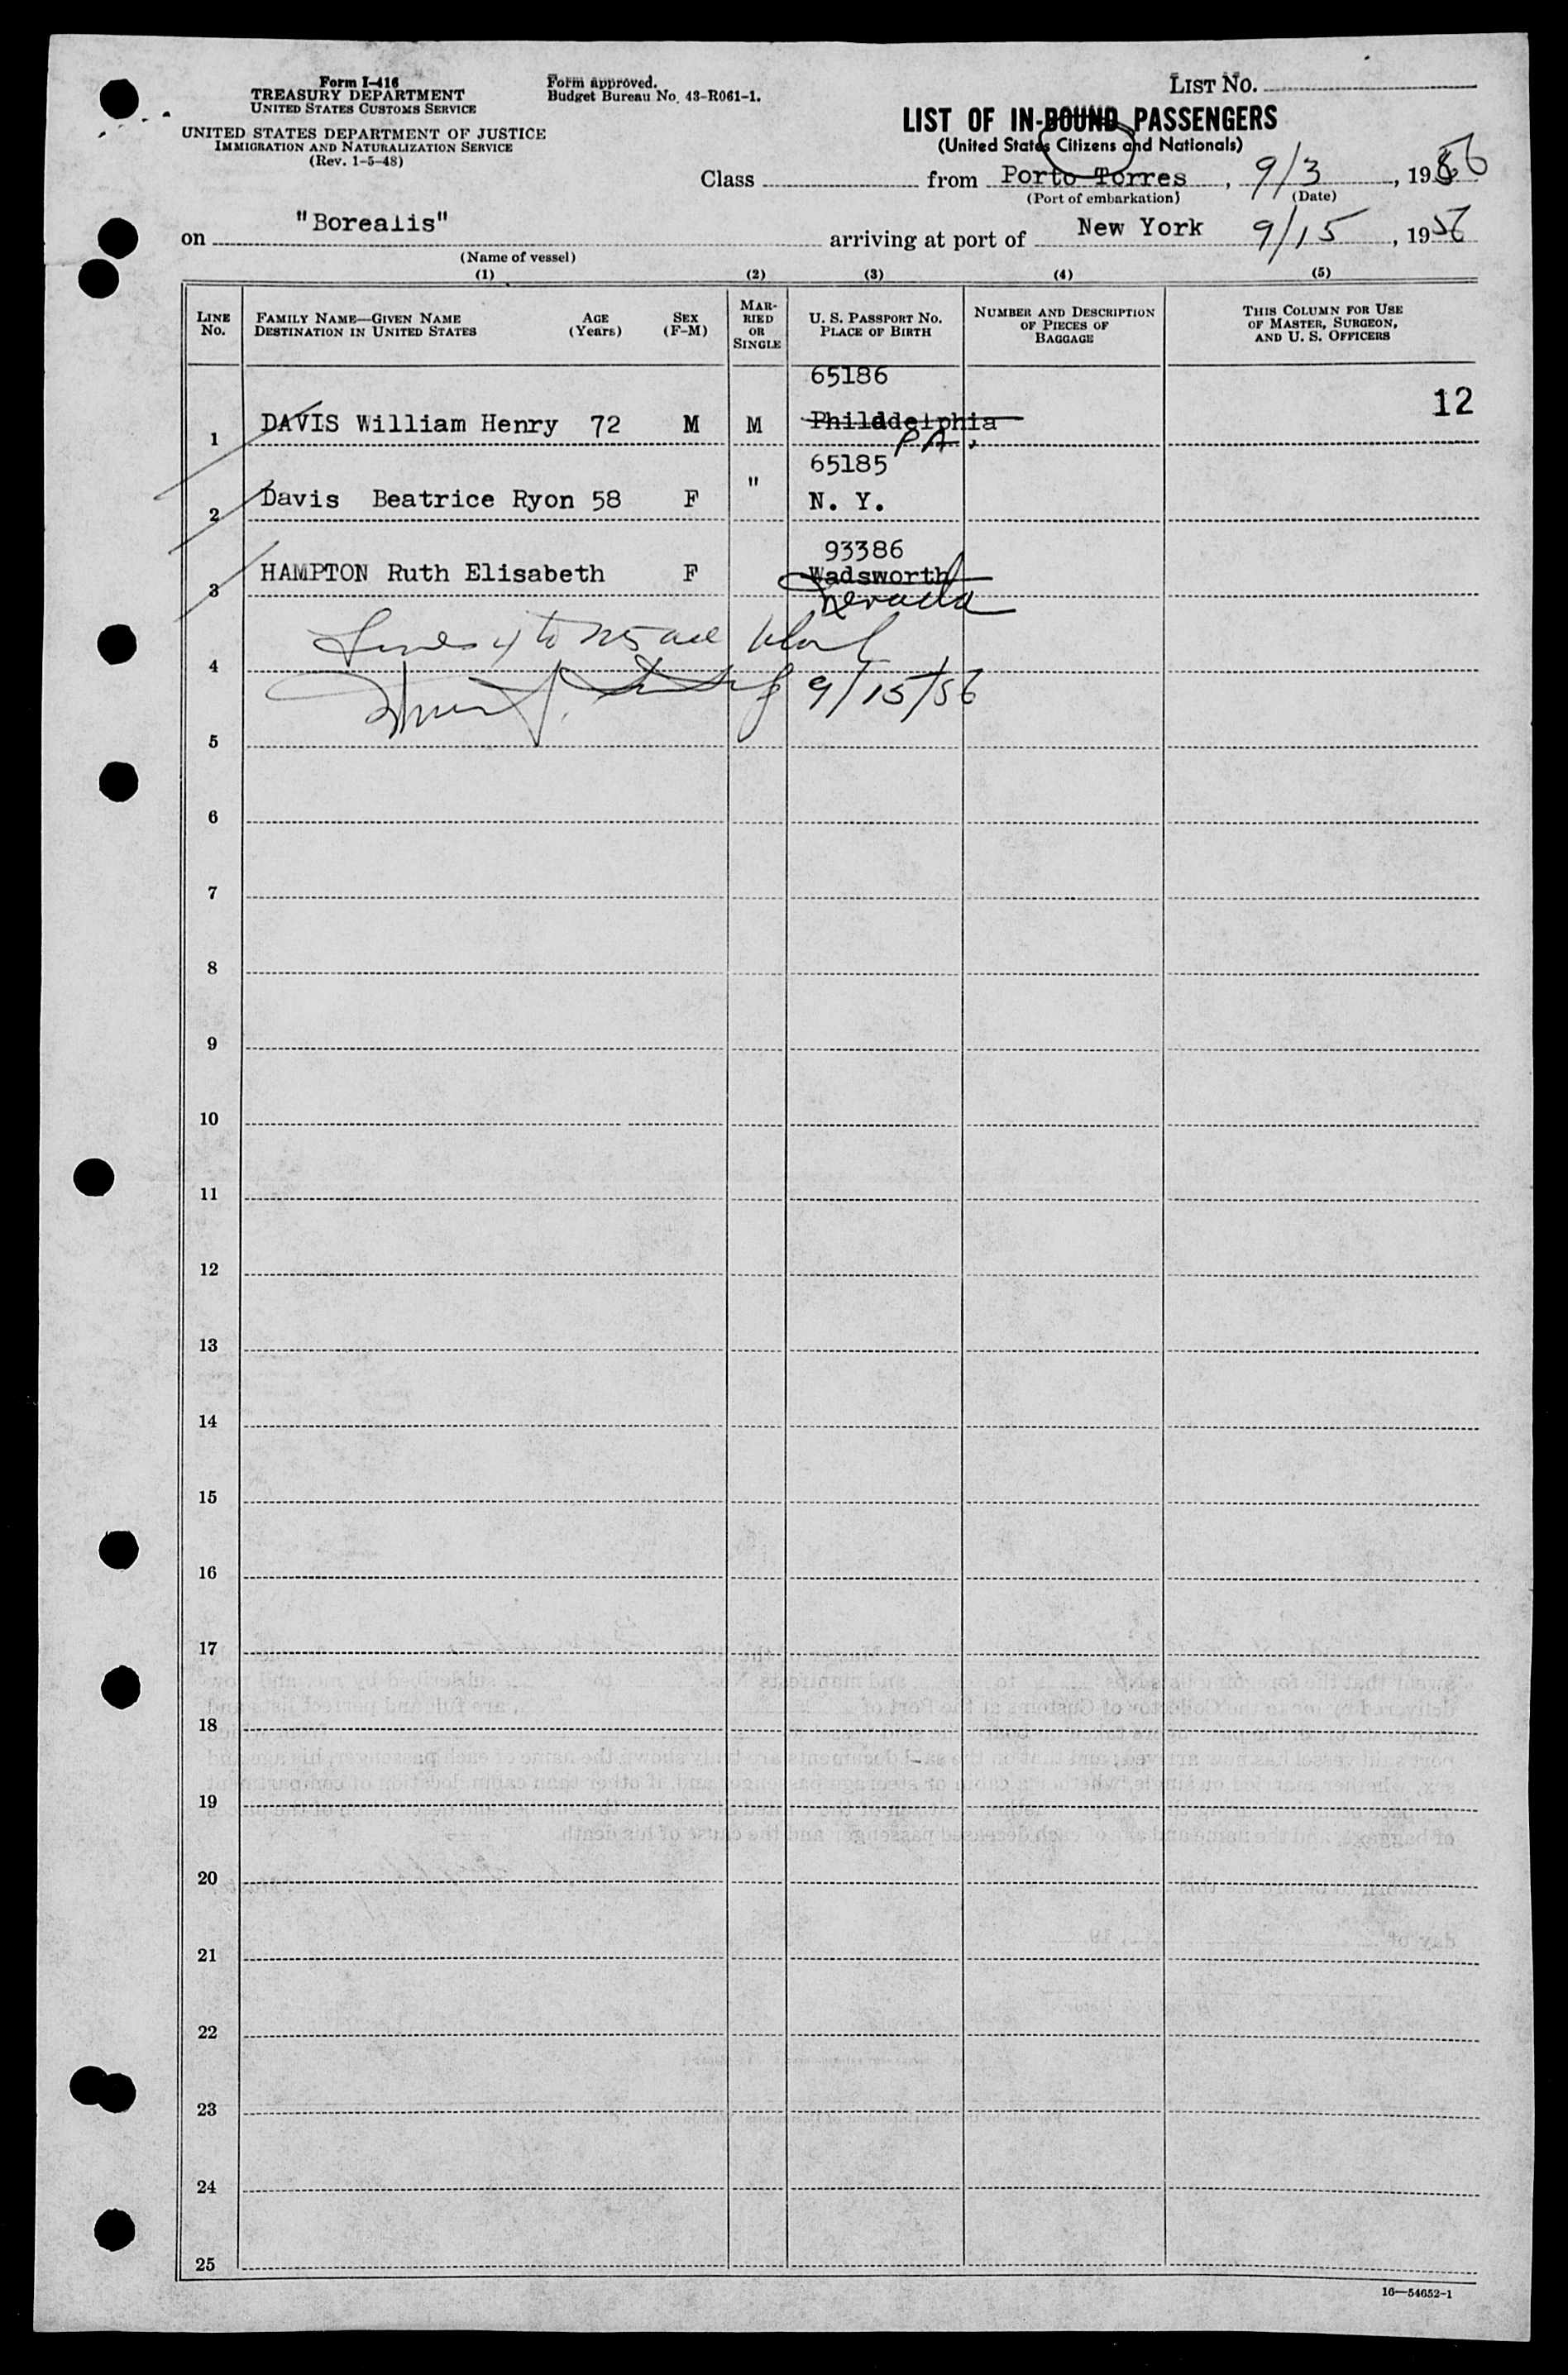 Form I-416
TREASURY DEPARTMENT
UNITED STATES CUSTOMS SERVICE
UNITED STATES DEPARTMENT OF JUSTICE
IMMIGRATION AND NATURALIZATION SERVICE
(Rev. 1-5-48)
Form approved.
Budget Bureau No. 43-R061-1.
LIST NO.
LIST OF IN-BOUND PASSENGERS
(United States Citizens and Nationals)
Class from Porto Torres, 9/3, 1956
(Port of embarkation) (Date)
on "Borealis" arriving at port of New York 9/15, 1956
(Name of vessel)
(1) (2) (3) (4) (5)
LINE No. FAMILY NAME—GIVEN NAME DESTINATION IN UNITED STATES AGE (Years) SEX (F-M) MARRIED OR SINGLE U. S. PASSPORT NO. PLACE OF BIRTH NUMBER AND DESCRIPTION OF PIECES OF BAGGAGE THIS COLUMN FOR USE OF MASTER, SURGEON, AND U. S. OFFICERS
65186
12
1 DAVIS William Henry 72 M M Philddelphia
PA.
65185
2 Davis Beatrice Ryon 58 F " N. Y.
93386
3 HAMPTON Ruth Elisabeth F Wadsworth
Nevada
Lines 4 to 25 are blank
4
9/15/56
5
6
7
8
9
10
11
12
13
14
15
16
17
18
19
20
21
22
23
24
25
16—54652-1